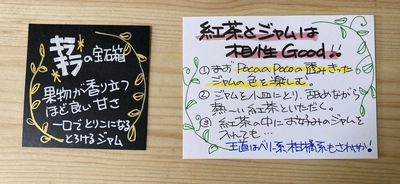 キラキラの宝石箱
果物が香り立つ
ほど良い甘さ
一口でとりこになる
とろけるジャム
紅茶とジャムは
相性Good!!
①まず PocaaPocoの透みきった
ジャムの色を楽しむ。
②ジャムを小皿にとり、舐めながら
熱～い紅茶といただく。
③紅茶の中にお好みのジャムを
入れても…
王道はベリー系 柑橘系もさわやか!